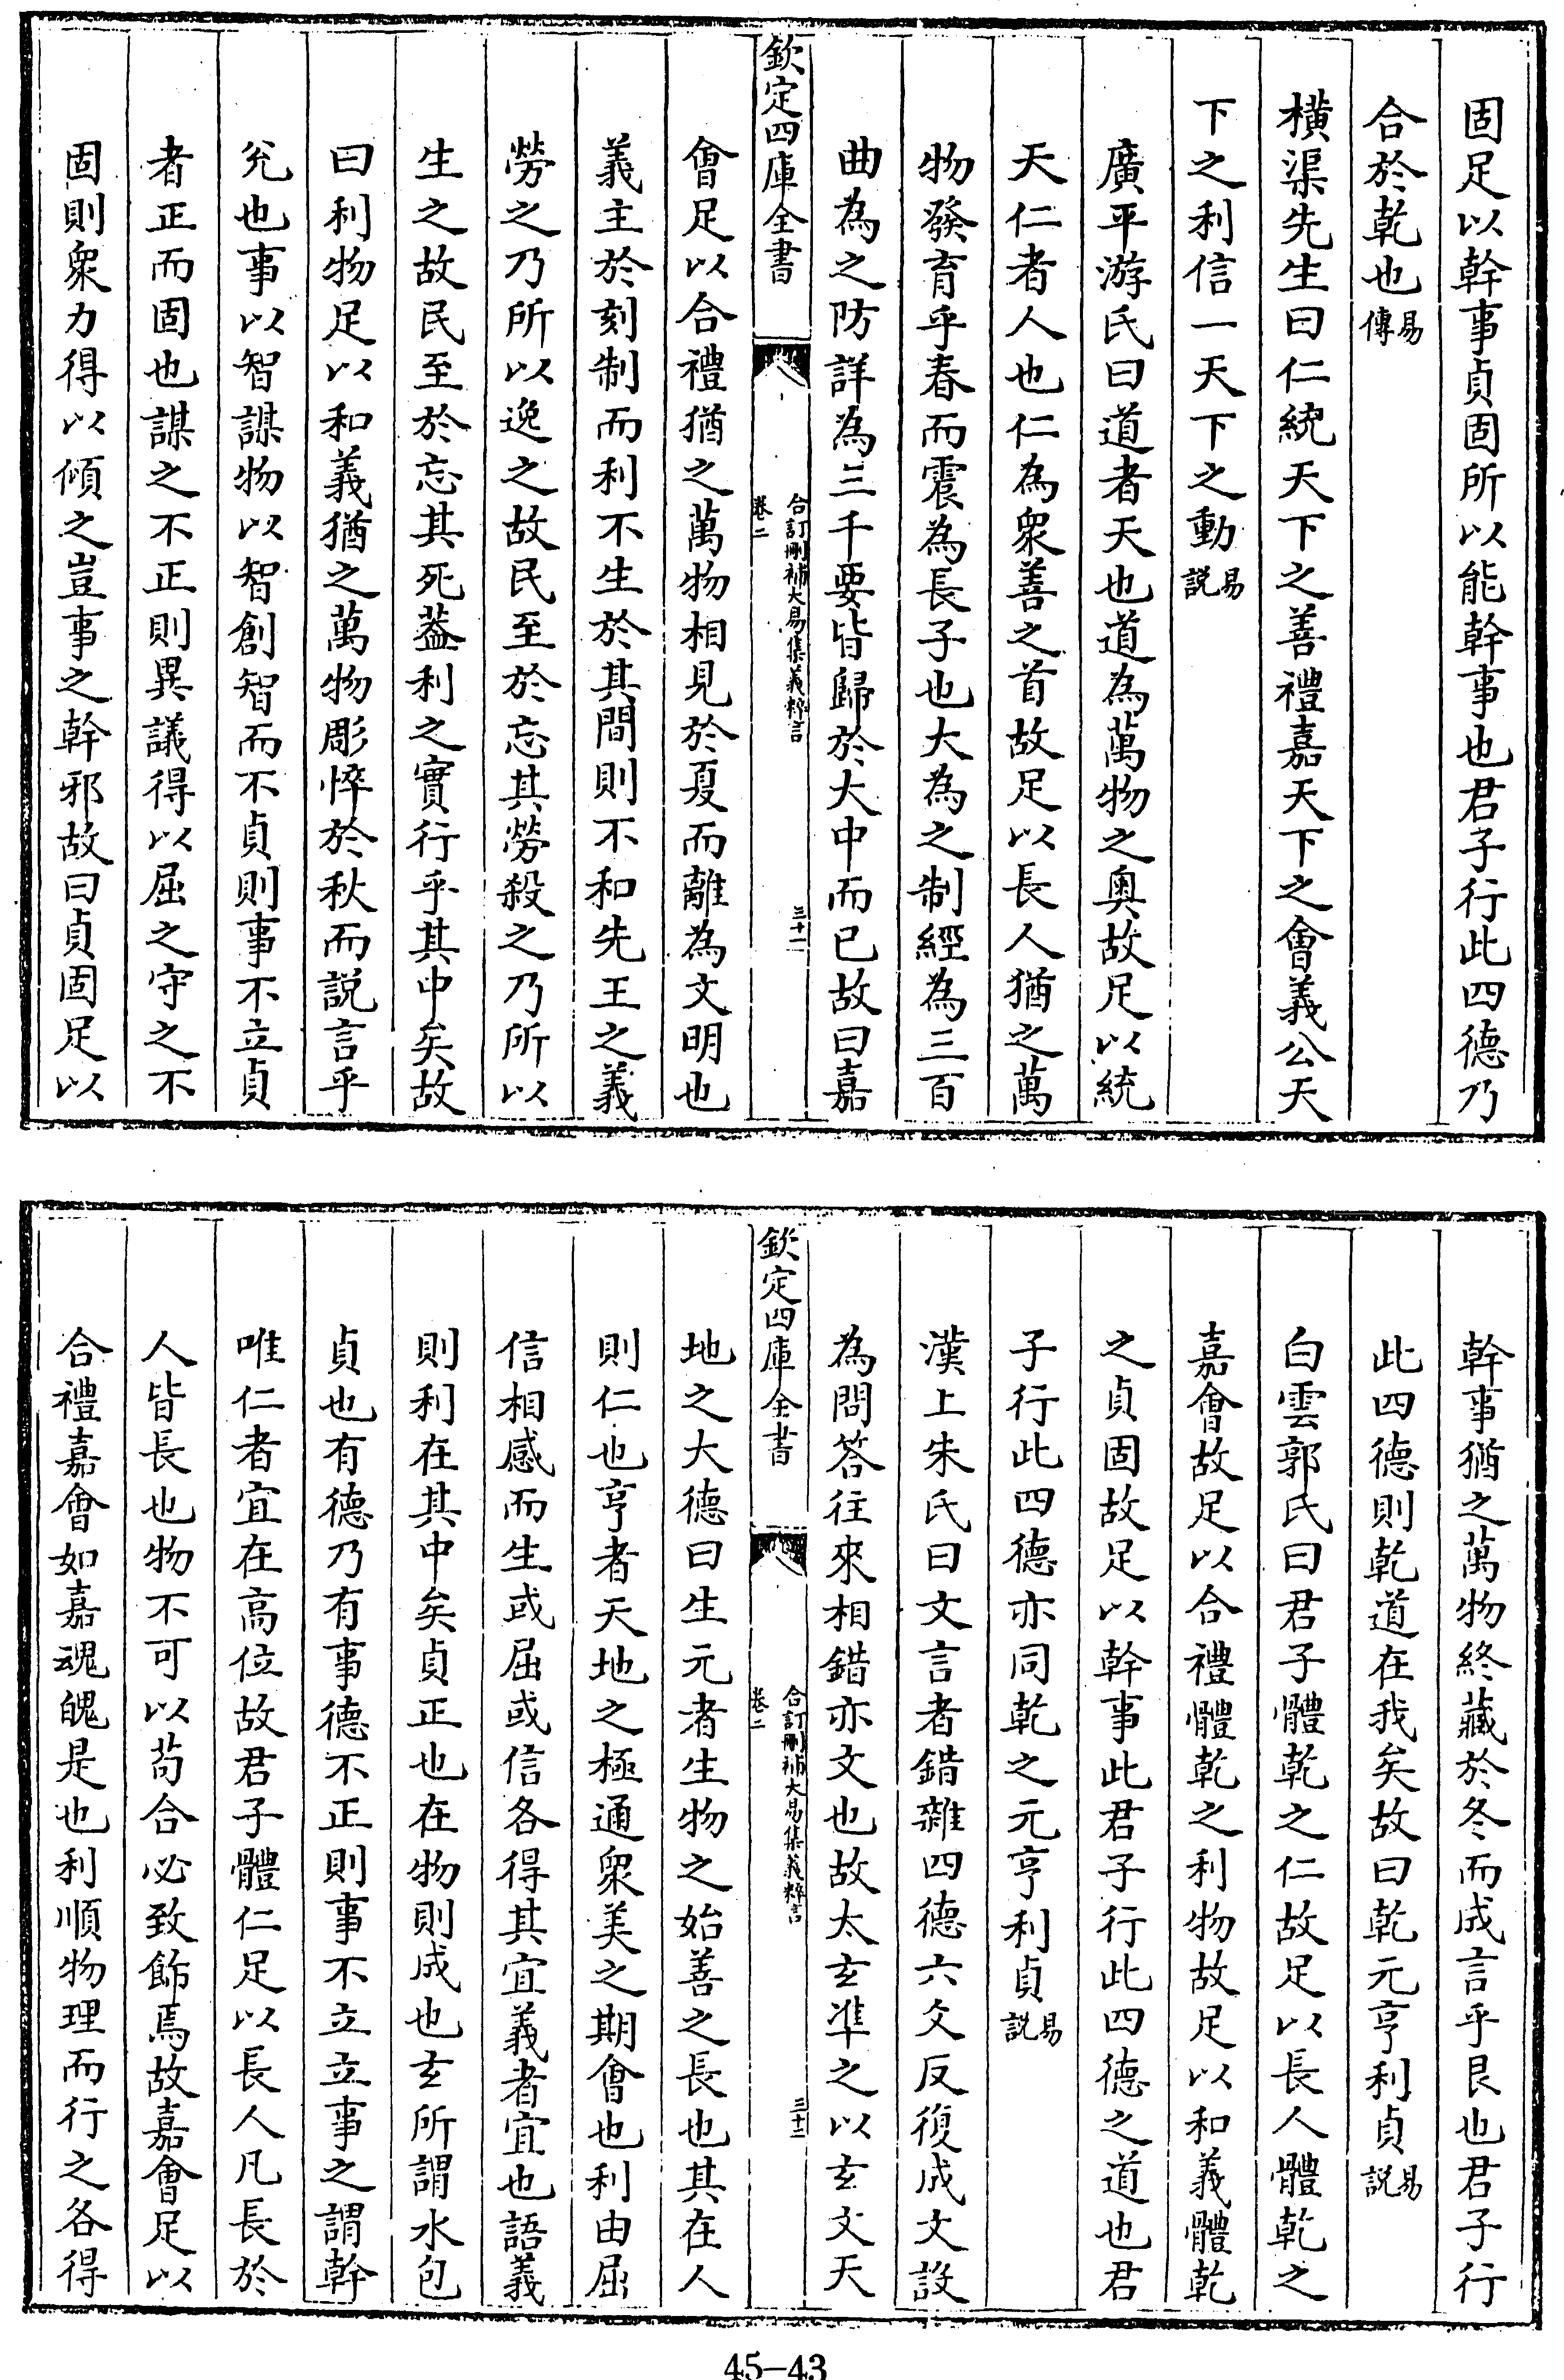 固足以幹事貞固所以能幹事也君子行此四德乃
合於乾也易傳
橫渠先生曰仁統天下之善禮嘉天下之會義公天
下之利信一天下之動易説
廣平游氏曰道者天也道為萬物之奥故足以統
天仁者人也仁為衆善之首故足以長人猶之萬
物發育乎春而震為長子也大為之制經為三百
曲為之防詳為三千要皆歸於大中而已故曰嘉
欽定四庫全書
合訂刪補大易集義粹言
卷二
三十一
會足以合禮猶之萬物相見於夏而離為文明也
義主於刻制而利不生於其間則不和先王之義
勞之乃所以逸之故民至於忘其勞殺之乃所以
生之故民至於忘其死葢利之實行乎其中矣故
曰利物足以和義猶之萬物彫悴於秋而説言乎
兊也事以智謀物以智創智而不貞則事不立貞
者正而固也謀之不正則異議得以屈之守之不
固則衆力得以傾之豈事之幹邪故曰貞固足以
幹事猶之萬物終藏於冬而成言乎艮也君子行
此四德則乾道在我矣故曰乾元亨利貞易説
白雲郭氏曰君子體乾之仁故足以長人體乾之
嘉會故足以合禮體乾之利物故足以和義體乾
之貞固故足以幹事此君子行此四德之道也君
子行此四德亦同乾之元亨利貞易説
漢上朱氏曰文言者錯雜四德六爻反復成文設
為問答往來相錯亦文也故太玄準之以玄文天
欽定四庫全書
合訂刪補大易集義粹言
卷二
三十二
地之大德曰生元者生物之始善之長也其在人
則仁也亨者天地之極通衆美之期會也利由屈
信相感而生或屈或信各得其宜義者宜也語義
則利在其中矣貞正也在物則成也玄所謂水包
貞也有德乃有事德不正則事不立立事之謂幹
唯仁者宜在高位故君子體仁足以長人凡長於
人皆長也物不可以苟合必致飾焉故嘉會足以
合禮嘉會如嘉魂魄是也利順物理而行之各得
45-43